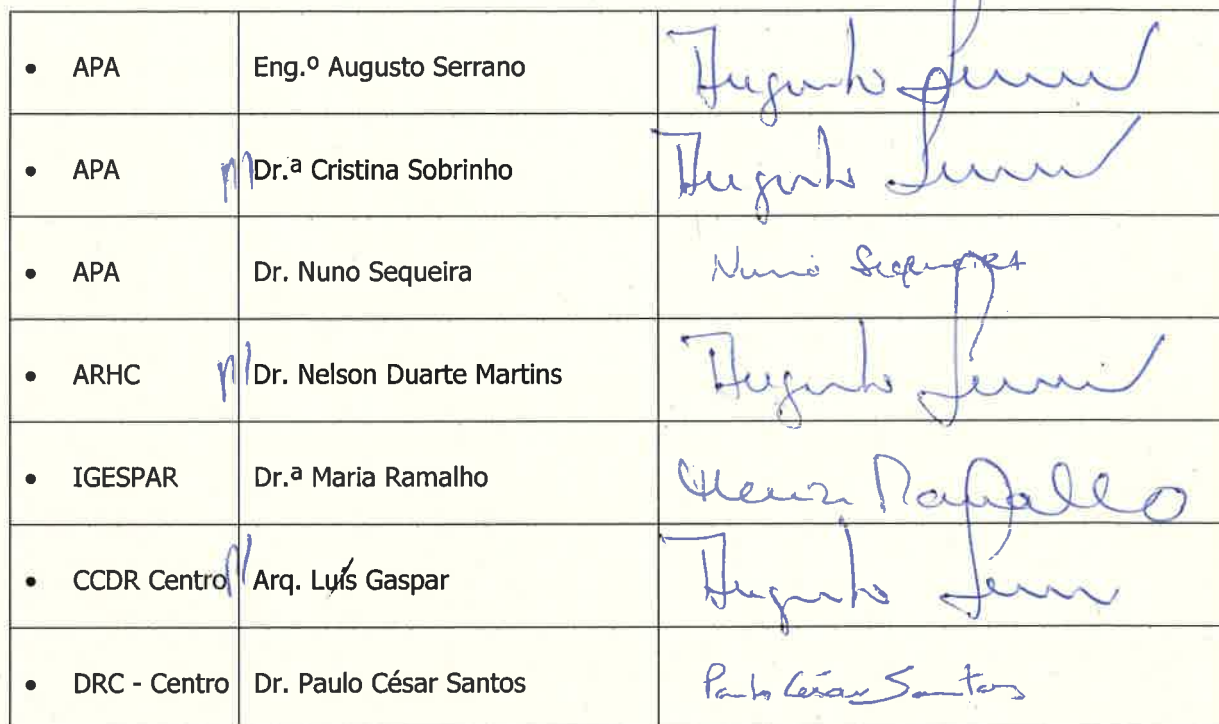 • APA Eng.º Augusto Serrano Augusto Serrano
• APA p/ Dr.ª Cristina Sobrinho Augusto Serrano
• APA Dr. Nuno Sequeira Nuno Sequeira
• ARHC p/ Dr. Nelson Duarte Martins Augusto Serrano
• IGESPAR Dr.ª Maria Ramalho Maria Ramalho
• CCDR Centro p/ Arq. Luís Gaspar Augusto Serrano
• DRC - Centro Dr. Paulo César Santos Paulo César Santos